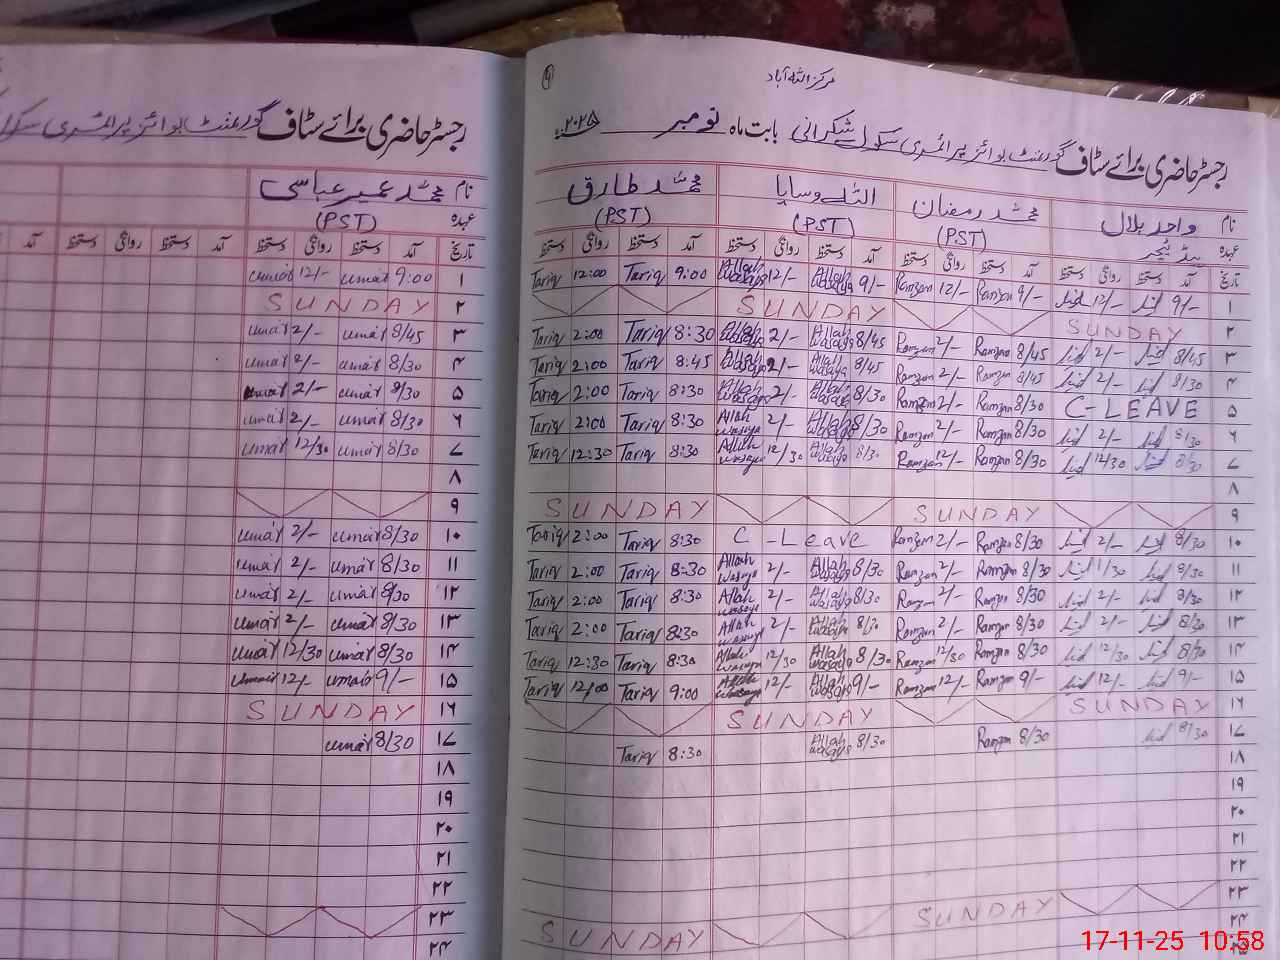 مرکز اللہ آباد
رجسٹر حاضری برائے سٹاف گورنمنٹ بوائز پرائمری سکول شیکرانی بابت ماہ نومبر ۲۰۲۵ء
نام واحد بلال محمد رمضان اللہ وسایا محمد طارق
عہدہ ہیڈ ٹیچر (PST) (PST) (PST)
تاریخ آمد دستخط روانگی دستخط آمد دستخط روانگی دستخط آمد دستخط روانگی دستخط آمد دستخط روانگی دستخط
Tariq 12:00 Tariq 9:00 Allah wasaya 12/- Allah wasaya 9/- Ramzan 12/- Ramzan 9/- 12/- 9/- ۱
SUNDAY SUNDAY ۲
Tariq 2:00 Tariq 8:30 Allah wasaya 2/- Allah wasaya 8/45 Ramzan 2/- Ramzan 8/45 2/- 8/45 ۳
Tariq 2:00 Tariq 8:45 Allah wasaya 2/- Allah wasaya 8/45 Ramzan 2/- Ramzan 8/45 2/- 8/30 ۴
Tariq 2:00 Tariq 8:30 Allah wasaya 2/- Allah wasaya 8/30 Ramzan 2/- Ramzan 8/30 C-LEAVE ۵
Tariq 2:00 Tariq 8:30 Allah wasaya 2/- Allah wasaya 8/30 Ramzan 2/- Ramzan 8/30 2/- 8/30 ۶
Tariq 12:30 Tariq 8:30 Allah wasaya 12/30 Allah wasaya 8/30 Ramzan 12/- Ramzan 8/30 12/30 8/30 ۷
۸
SUNDAY SUNDAY ۹
Tariq 2:00 Tariq 8:30 C-Leave Ramzan 2/- Ramzan 8/30 2/- 8/30 ۱۰
Tariq 2:00 Tariq 8:30 Allah wasaya 2/- Allah wasaya 8/30 Ramzan 2/- Ramzan 8/30 1/30 8/30 ۱۱
Tariq 2:00 Tariq 8:30 Allah wasaya 2/- Allah wasaya 8/30 Ramzan 2/- Ramzan 8/30 2/- 8/30 ۱۲
Tariq 2:00 Tariq 8:30 Allah wasaya 2/- Allah wasaya 8/30 Ramzan 2/- Ramzan 8/30 2/- 8/30 ۱۳
Tariq 12:30 Tariq 8:30 Allah wasaya 12/30 Allah wasaya 8/30 Ramzan 12/30 Ramzan 8/30 12/30 8/30 ۱۴
Tariq 12:00 Tariq 9:00 Allah wasaya 12/- Allah wasaya 9/- Ramzan 12/- Ramzan 9/- 12/- 9/- ۱۵
SUNDAY SUNDAY ۱۶
Tariq 8:30 Allah wasaya 8/30 Ramzan 8/30 8/30 ۱۷
۱۸
۱۹
۲۰
۲۱
۲۲
SUNDAY SUNDAY ۲۳
۲۴
رجسٹر حاضری برائے سٹاف گورنمنٹ بوائز پرائمری سکول
نام محمد عمیر عباسی
عہدہ (PST)
تاریخ آمد دستخط روانگی دستخط آمد دستخط روانگی دستخط آمد
umair 12/- umair 9:00 ۱
SUNDAY ۲
umair 2/- umair 8/45 ۳
umair 2/- umair 8/30 ۴
umair 2/- umair 8/30 ۵
umair 2/- umair 8/30 ۶
umair 12/30 umair 8/30 ۷
۸
۹
umair 2/- umair 8/30 ۱۰
umair 2/- umair 8/30 ۱۱
umair 2/- umair 8/30 ۱۲
umair 2/- umair 8/30 ۱۳
umair 12/30 umair 8/30 ۱۴
umair 12/- umair 9/- ۱۵
SUNDAY ۱۶
umair 8/30 ۱۷
۱۸
۱۹
۲۰
۲۱
۲۲
۲۳
۲۴
17-11-25 10:58